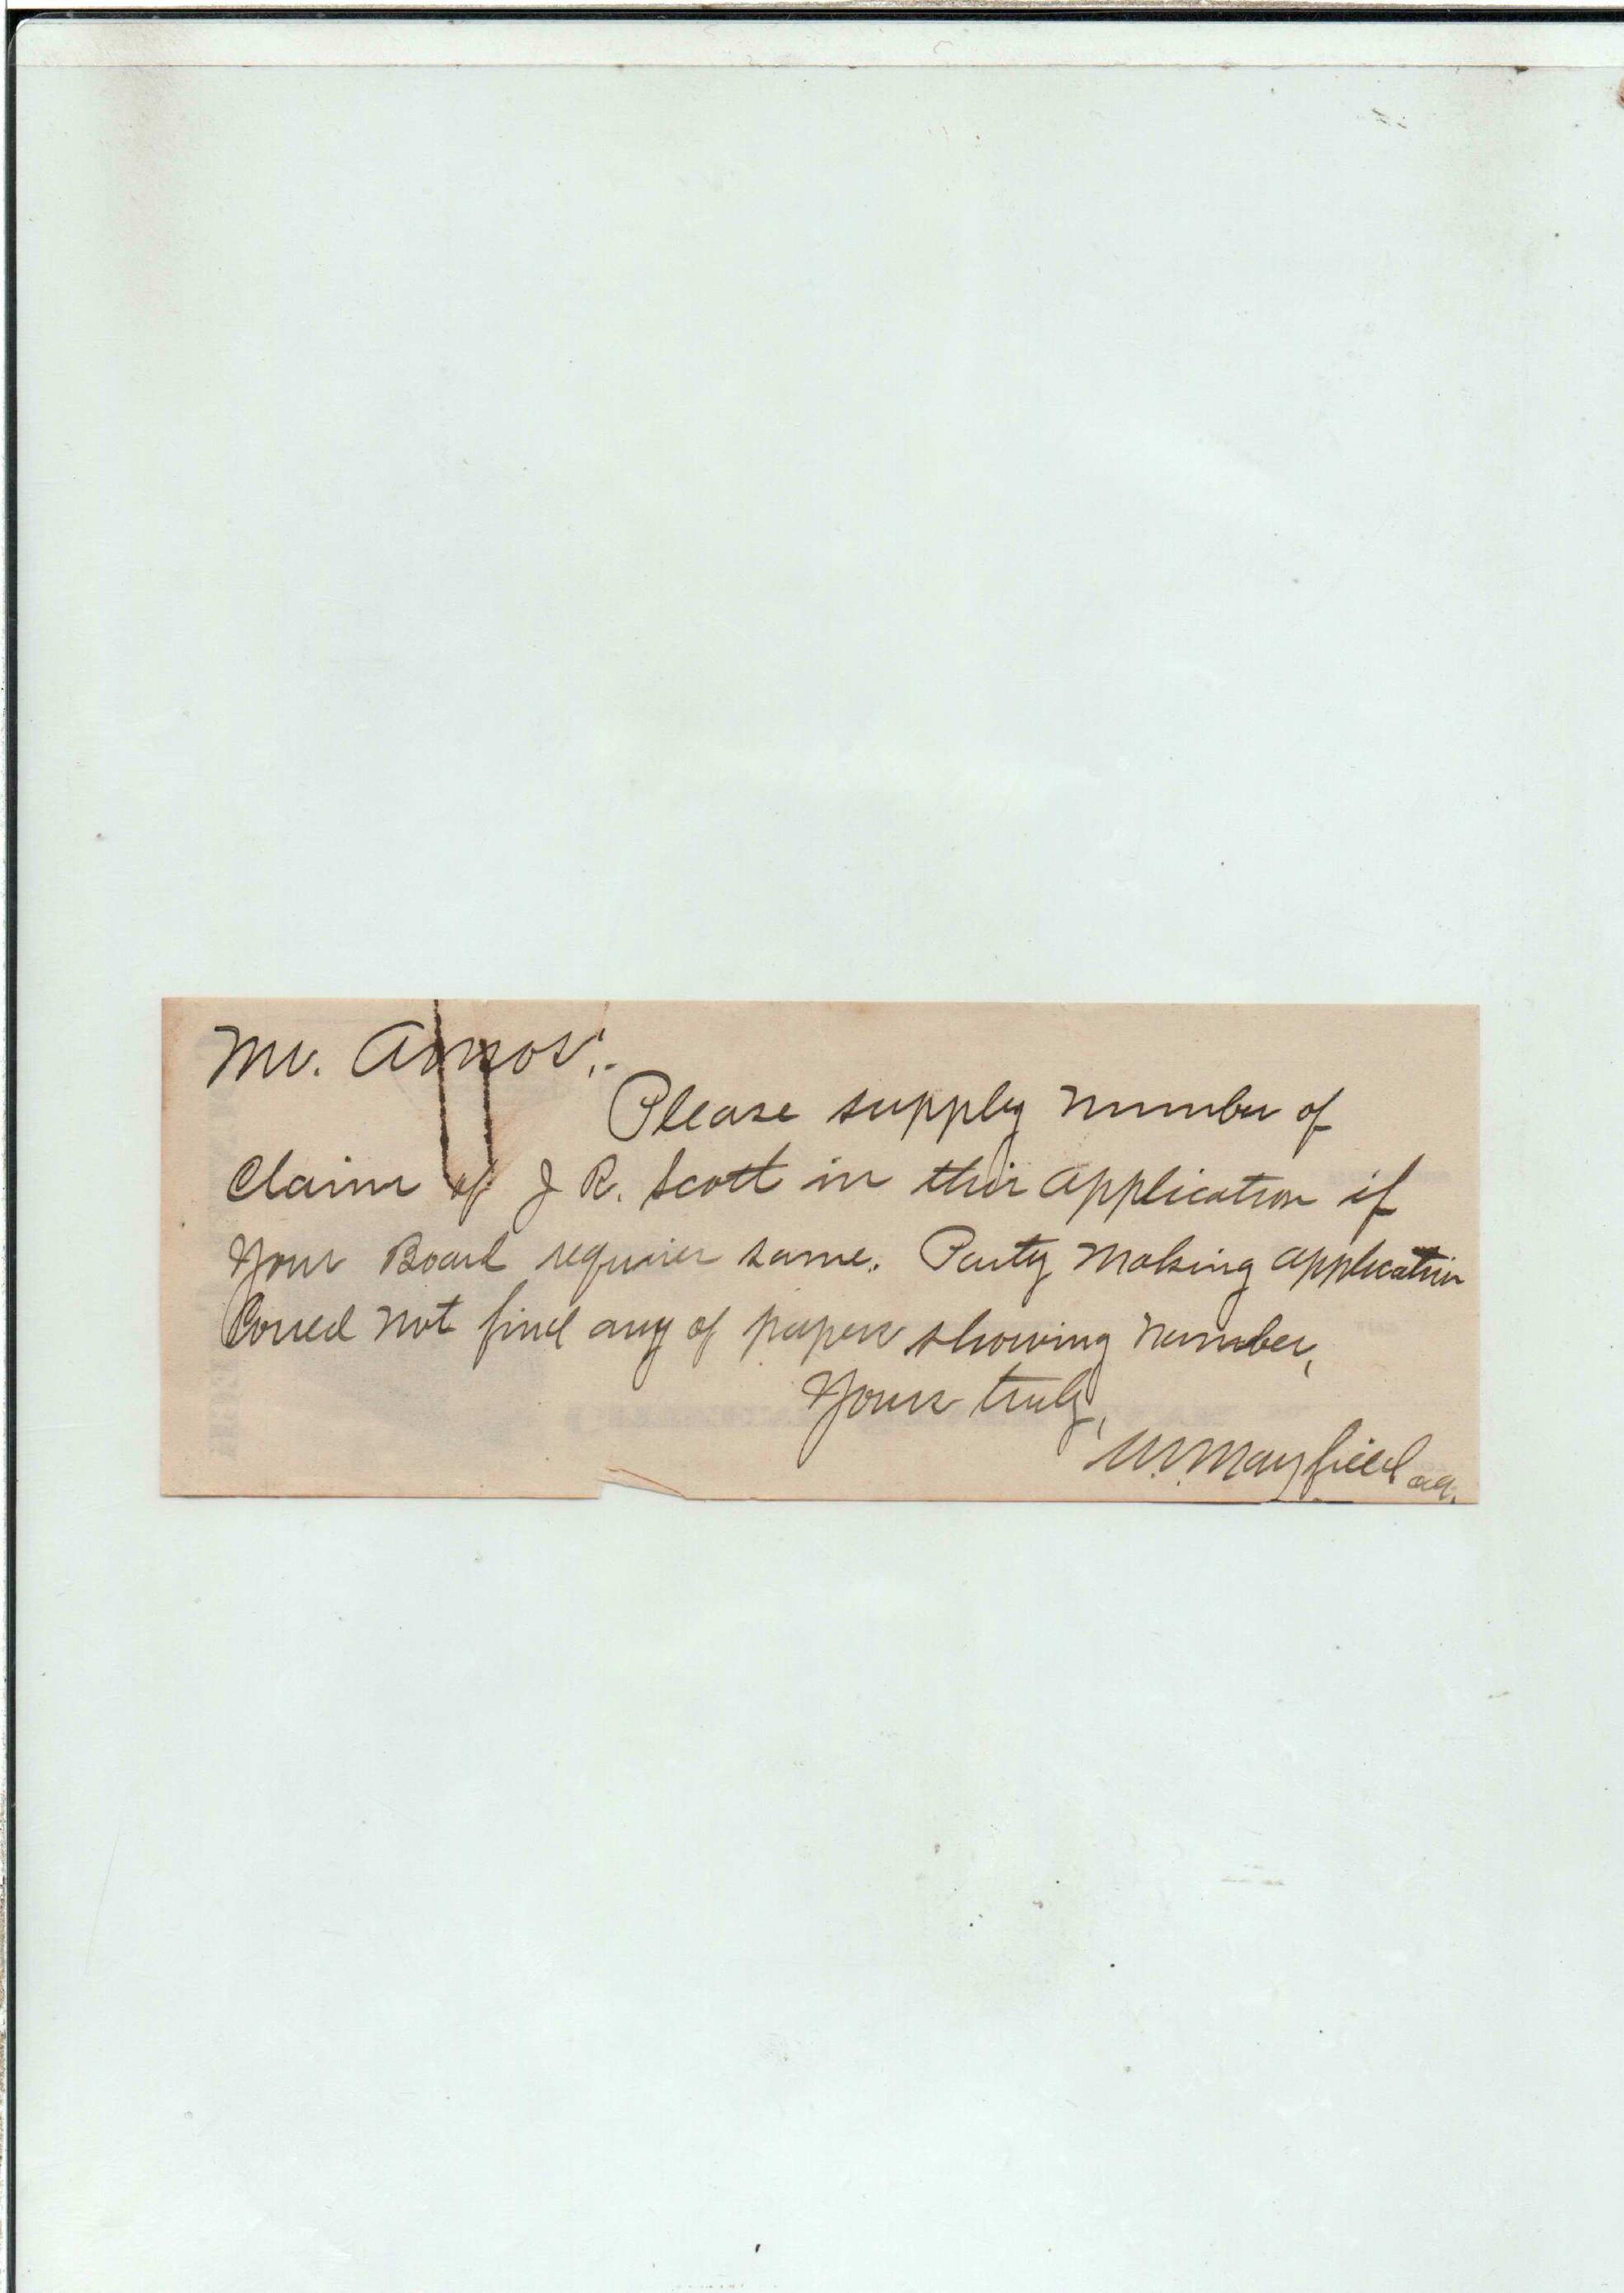 Mr. Amos:-
Please supply number of
Claim of J R. Scott in this application if
Your Board requires same. Party making application
Could not find any of papers showing number,
Yours truly,
W. Mayfield